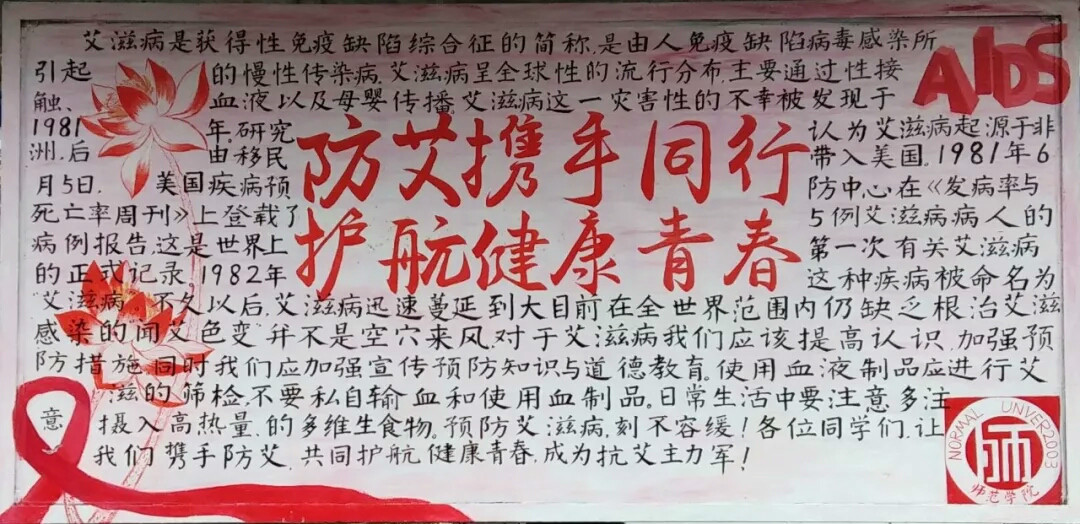 艾滋病是获得性免疫缺陷综合征的简称,是由人免疫缺陷病毒感染所
AIDS
引起的慢性传染病,艾滋病呈全球性的流行分布,主要通过性接
触、血液以及母婴传播,艾滋病这一灾害性的不幸被发现于
1981年,研究认为艾滋病起源于非
洲,后由移民带入美国,1981年6
月5日,美国疾病预防中心在《发病率与
死亡率周刊》上登载了5例艾滋病病人的
病例报告,这是世界上第一次有关艾滋病
的正式记录,1982年这种疾病被命名为
防艾携手同行
护航健康青春
艾滋病,不久以后,艾滋病迅速蔓延到大目前在全世界范围内仍缺乏根治艾滋
感染的闻艾色变并不是空穴来风对于艾滋病我们应该提高认识,加强预
防措施,同时我们应加强宣传预防知识与道德教育。使用血液制品应进行艾
滋的筛检,不要私自输血和使用血制品。日常生活中要注意多注
意摄入高热量、的多维生食物。预防艾滋病,刻不容缓!各位同学们,让
我们携手防艾,共同护航健康青春,成为抗艾主力军!
NORMAL UNVER2003
师
师范学院